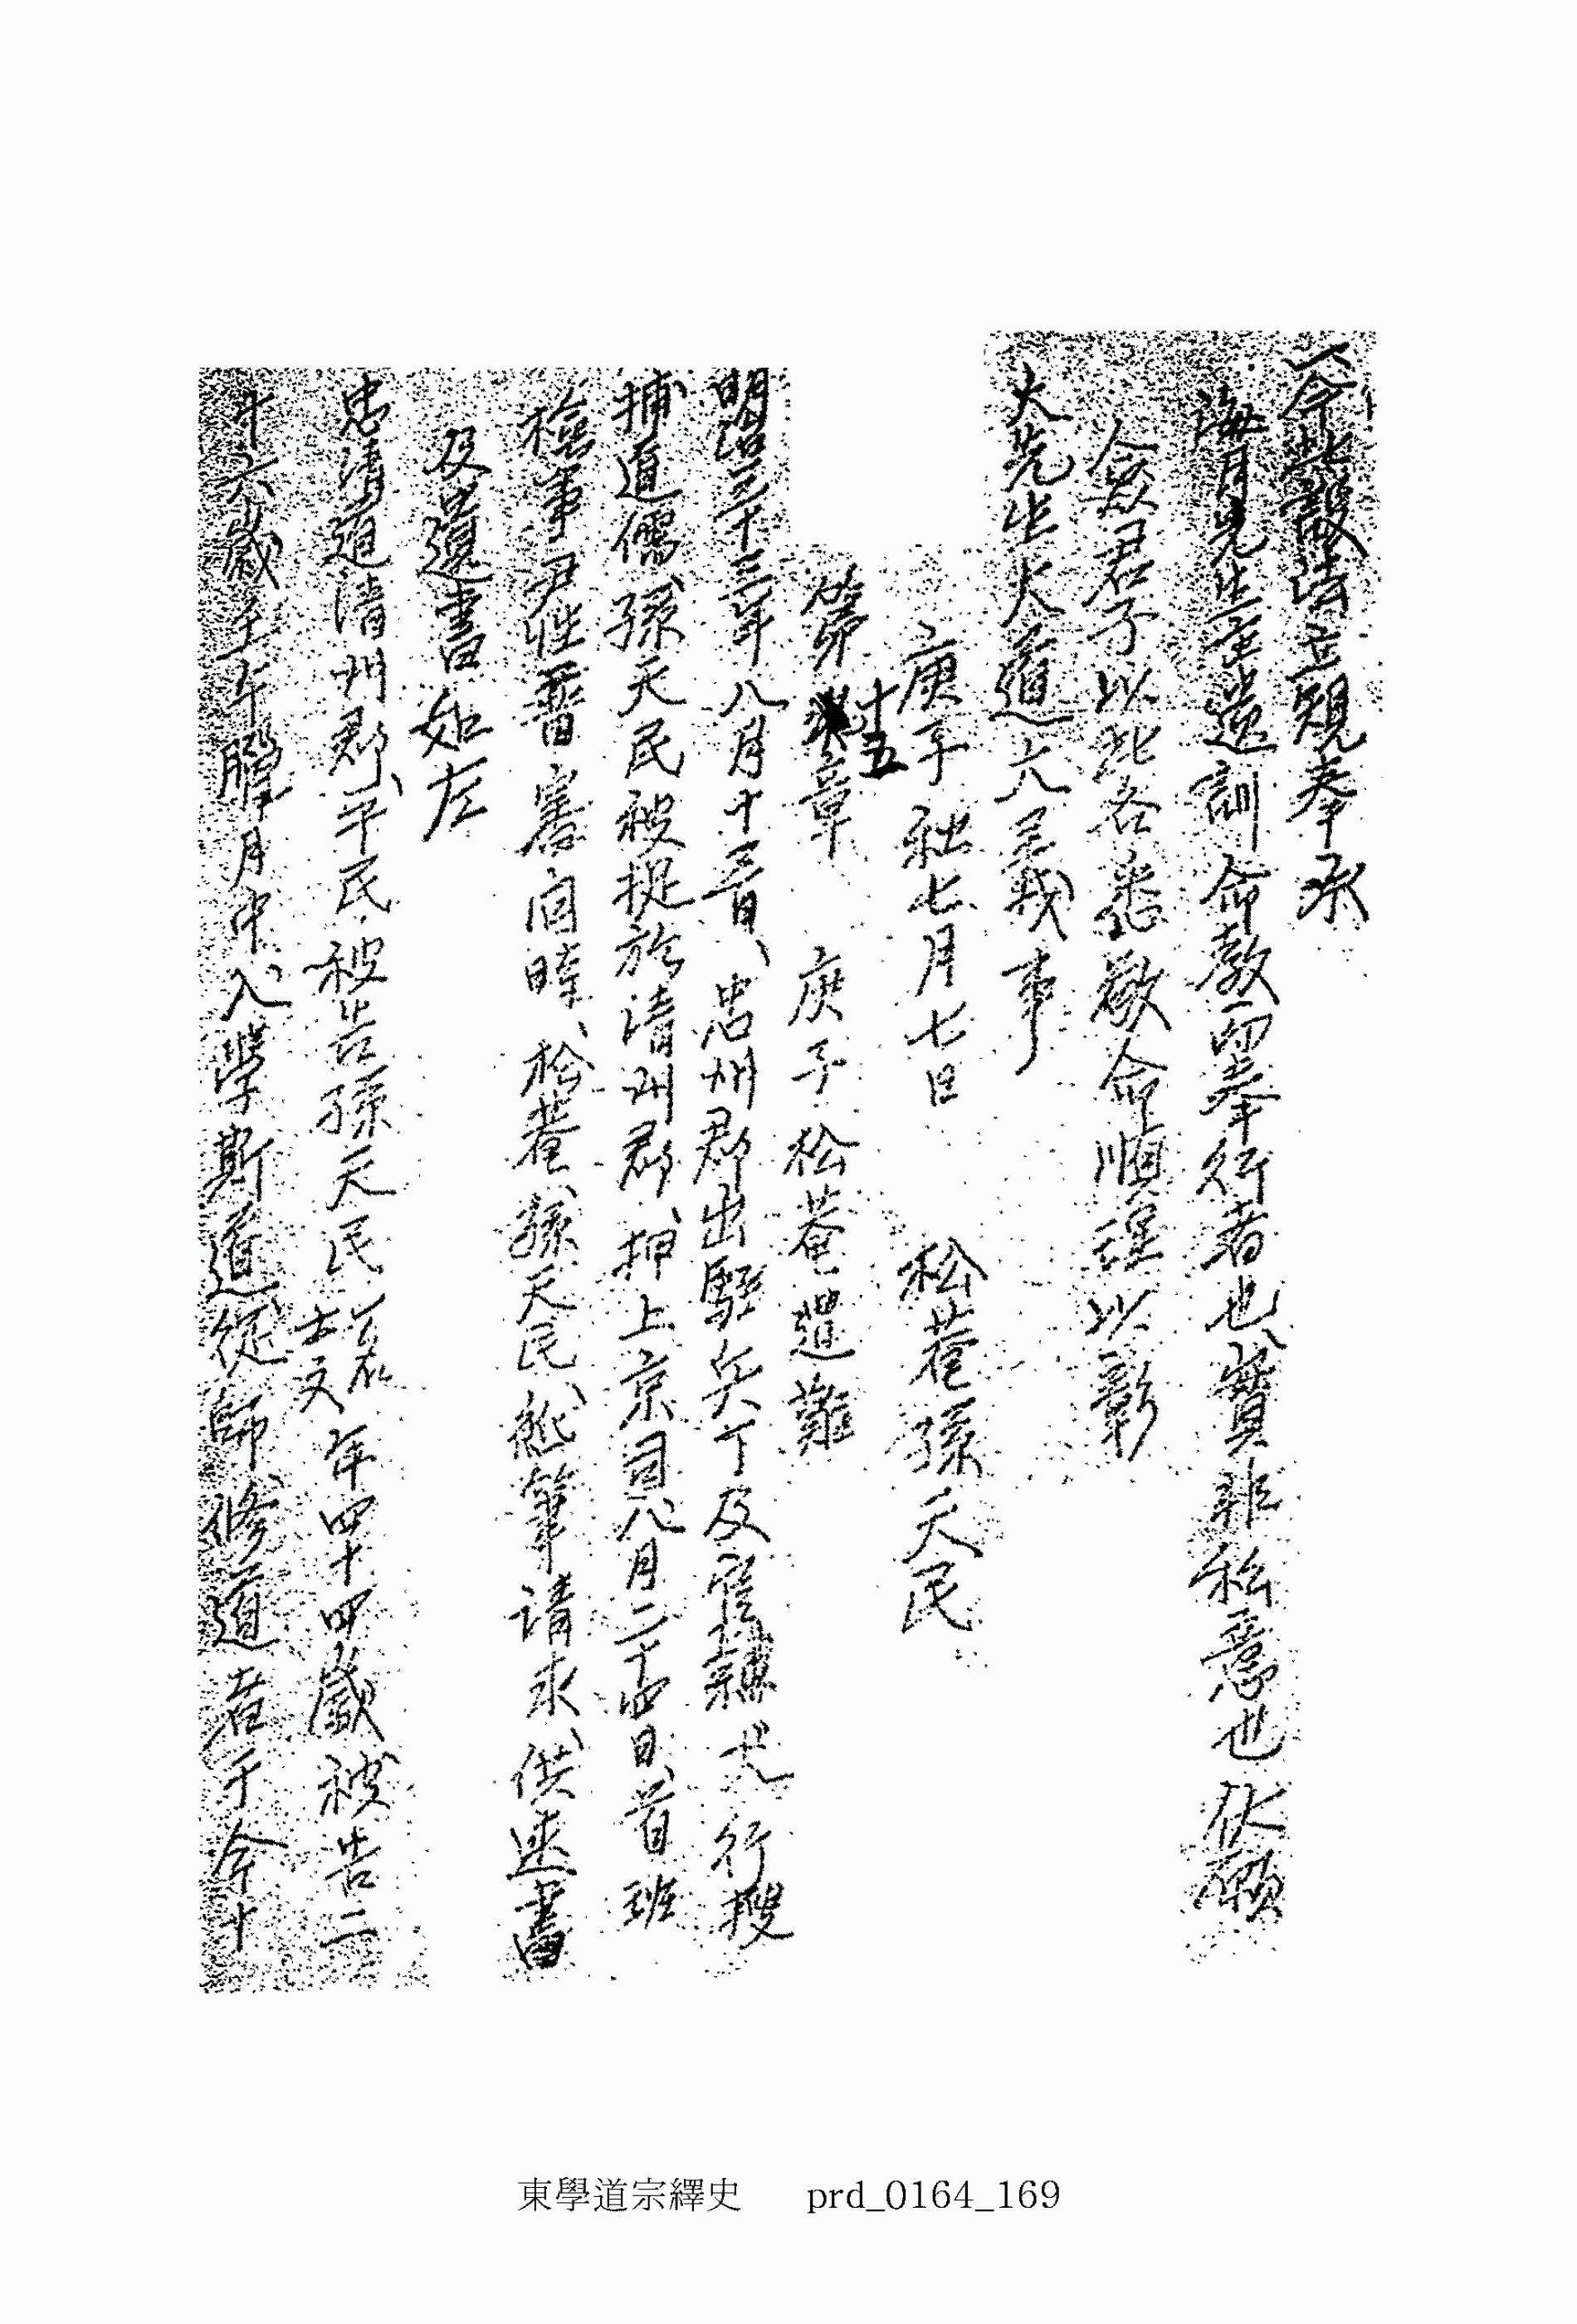 一 今此設法立規奉承
海月先生在世遺訓命敎一切奉行者也、實非私意也 伏願
僉君子以此各悉敬命順理以彰
大先生大道大義事
庚子 秋七月七日 松菴 孫天民
第十五章 庚子 松菴遭難
明治三十三年八月十三日、忠州郡出駐兵丁及官隷大行搜
捕道儒、孫天民被捉於淸州郡、押上京司、八月二十四日、首班
檢事尹性普審問時、松菴、孫天民、紙筆請求、供述書
及遺書如左
忠淸道淸州郡、平民、被告孫天民 年四十四歲 被告二
十六歲壬午臘月中入學斯道、從師修道者于今十